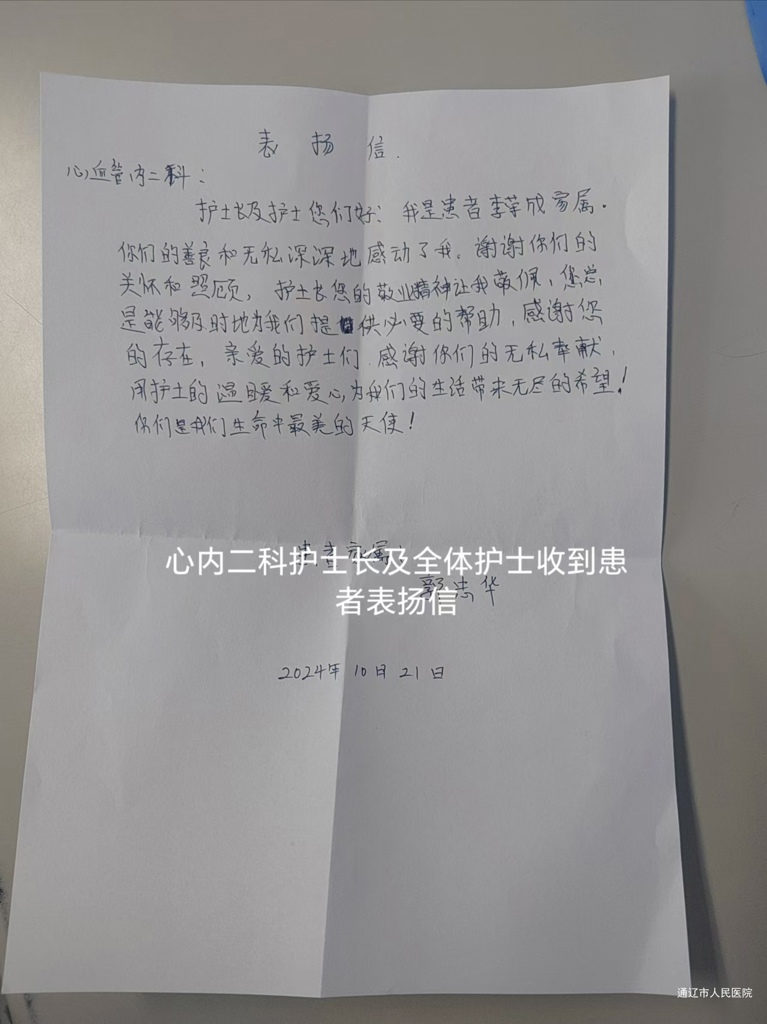 表扬信.
心血管内二科：
护士长及护士您们好：我是患者李荣成家属.
你们的善良和无私深深地感动了我。谢谢你们的
关怀和照顾，护士长您的敬业精神让我敬佩，您总
是能够及时地为我们提供必要的帮助，感谢您
的存在，亲爱的护士们 感谢你们的无私奉献，
用护士的温暖和爱心，为我们的生活带来无尽的希望！
你们是我们生命中最美的天使！
患者家属：
郭忠华
心内二科护士长及全体护士收到患
者表扬信
2024年10月21日
通辽市人民医院